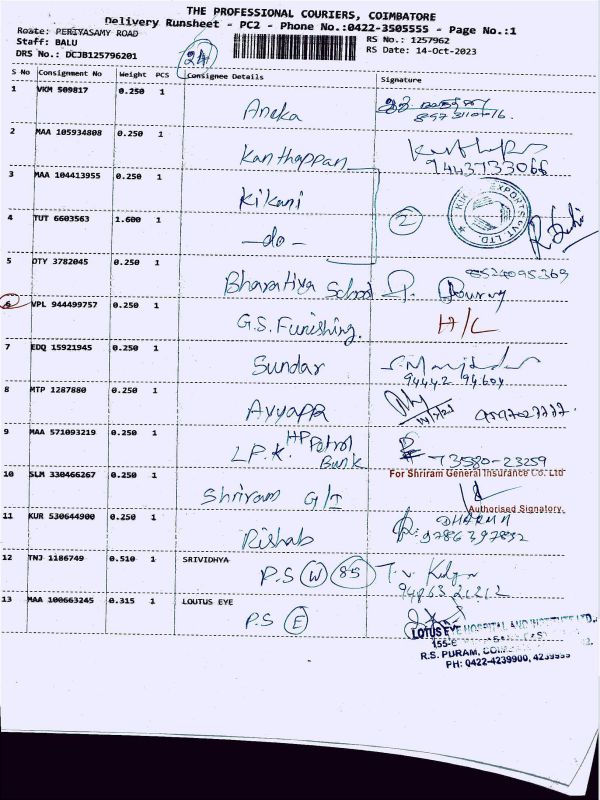 THE PROFESSIONAL COURIERS, COIMBATORE
Delivery Runsheet - PC2 - Phone No.:0422-3505555 - Page No.:1
Route: PERIYASAMY ROAD
RS No.: 1257962
Staff: BALU
RS Date: 14-Oct-2023
DRS No.: DCJB125796201
24
S No Consignment No Weight PCS Consignee Details Signature
1 VKM 509817 0.250 1
Aneka
2 MAA 105934808 0.250 1
Kanthappan
9443733066
3 MAA 104413955 0.250 1
Kikani
EXPORTS PVT LTD
4 TUT 6603563 1.600 1
-do-
2
5 DTY 3782045 0.250 1
8524095369
Bharatiya School
6 VPL 944499757 0.250 1
G.S. Furnishing.
H/L
7 EDQ 15921945 0.250 1
Sundar
94442 94604
8 MTP 1287880 0.250 1
Ayyappa
9 MAA 571093219 0.250 1
L.P.K. HP Petrol Bunk
73580-23259
10 SLM 330466267 0.250 1
For Shriram General Insurance Co. Ltd
Shriram G/I
Authorised Signatory.
11 KUR 530644900 0.250 1
DHARMA
Rishab
9786397832
12 TNJ 1186749 0.510 1 SRIVIDHYA
P.S W 85
9486321212
13 MAA 100663245 0.315 1 LOUTUS EYE
P.S E
LOTUS EYE HOSPITAL AND INSTITUTE LTD.,
R.S. PURAM,
PH: 0422-4239900, 4239999